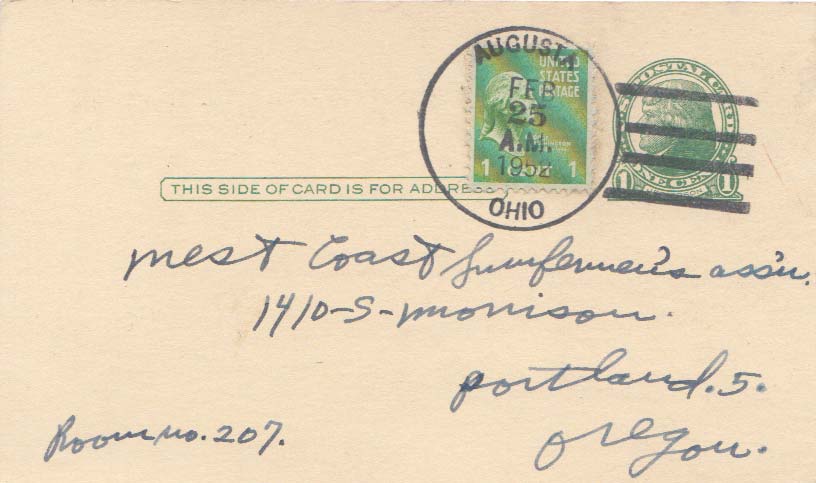 AUGUSTA
FEB
25
A.M.
1952
OHIO
UNITED
STATES
POSTAGE
1 1
1 ONE CENT 1
THIS SIDE OF CARD IS FOR ADDRESS
West Coast Lumbermen's ass'n.
1410-S-morrison.
portland.5.
Room no.207.
oregon.